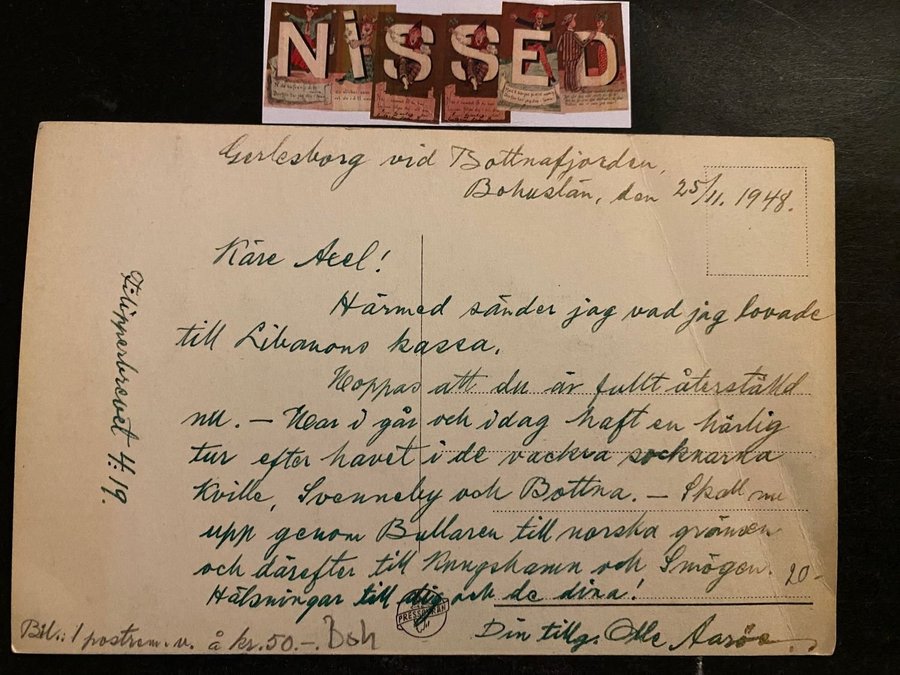 NiSSED
Gerlesborg vid Bottnafjorden,
Bohuslän, den 25/11. 1948.
Käre Axel!
Härmed sänder jag vad jag lovade
till Libanons kassa.
Hoppas att du är fullt återställd
nu. – Har i går och idag haft en härlig
tur efter havet i de vackra socknarna
Kville, Svenneby och Bottna. – Skall nu
upp genom Bullaren till norska gränsen
och därefter till Kungshamn och Smögen.
20-
Hälsningar till dig och de dina!
Din tillg. Olle
Filipperbrevet 4:19.
PRESSBYRÅN
Bil.: 1 postrem.v. å kr. 50.-. Boh